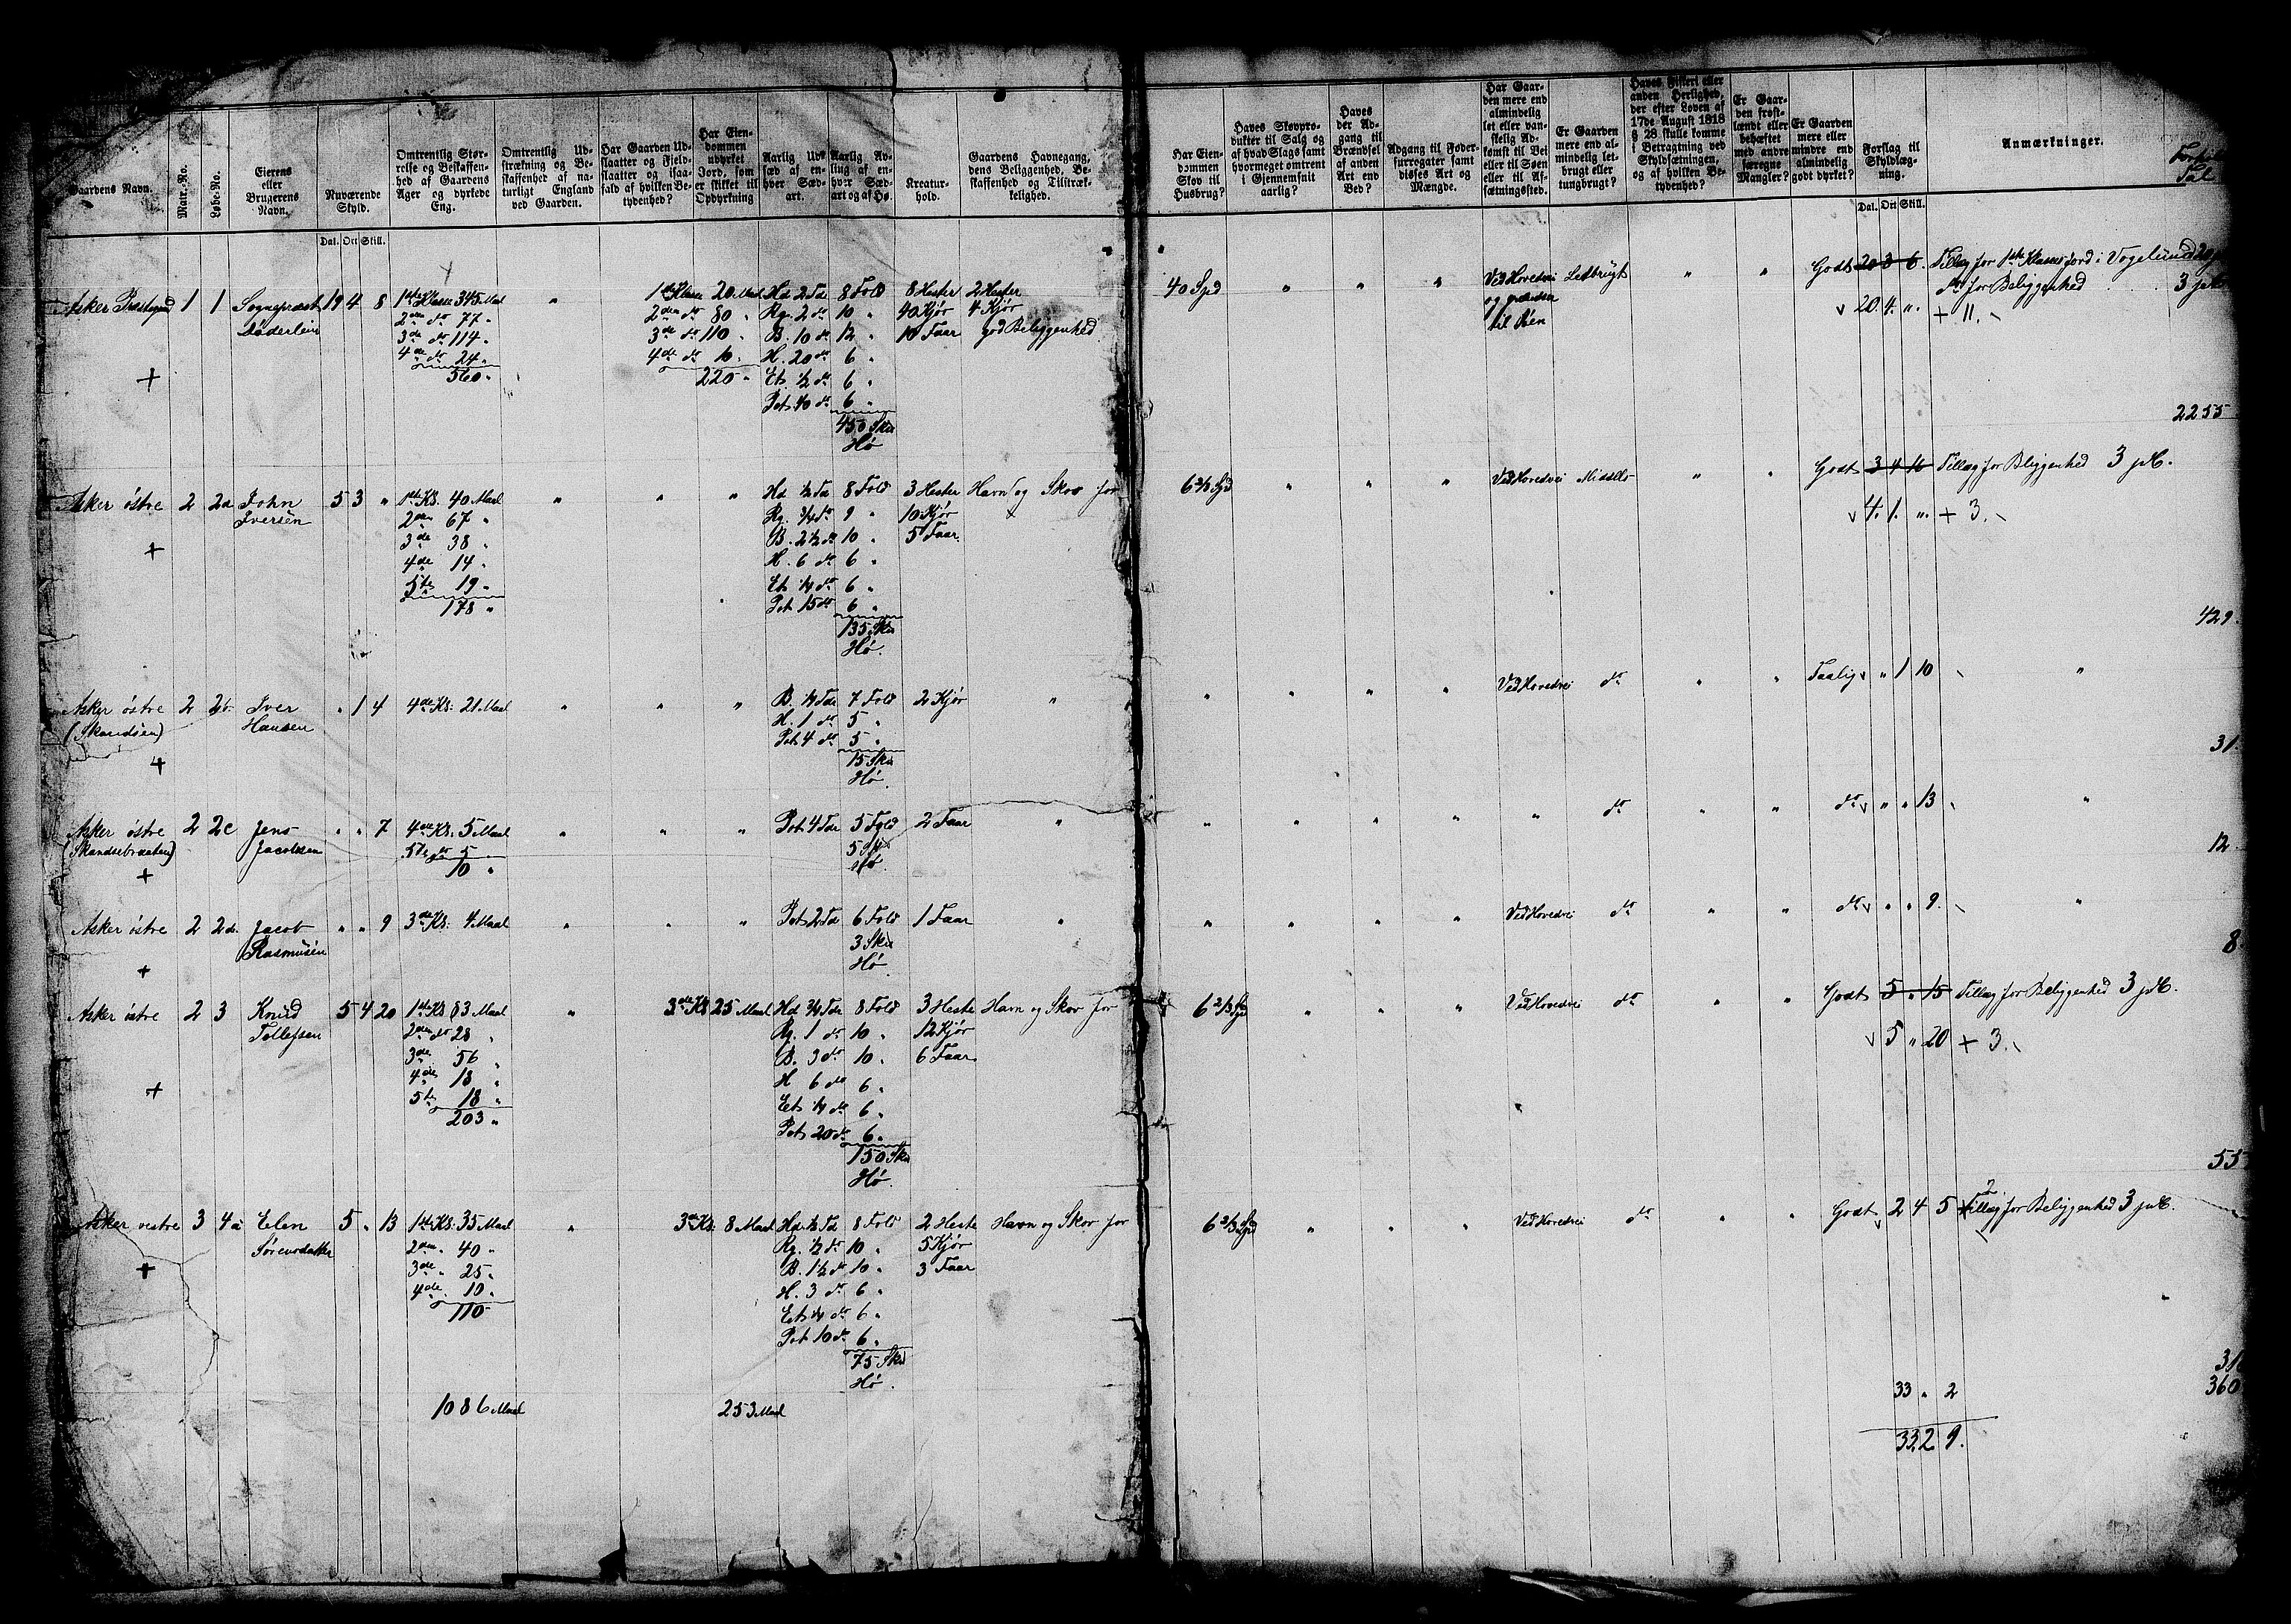 Gaardens Navn.
Matr.-No.
Løbe-No.
Eierens
eller
Brugerens
Navn.
Nuværende
Skyld.
Dal. Ort Skill.
Omtrentlig Stør-
relse og Beskaffen-
hed af Gaardens
Ager og dyrkede
Eng.
Omtrentlig Ud-
strækning og Be-
skaffenhed af na-
turligt England
ved Gaarden.
Har Gaarden Ud-
slaatter og Fjeld-
slaatter og isaa-
fald af hvilken Be-
tydenhed?
Har Eien-
dommen
udyrket
Jord, som
er skikket til
Opdyrkning
Aarlig Ud-
sæd af en-
hver Sæd-
art.
Aarlig Av-
ling af en-
hver Sæd-
art og af Hø.
Kreatur-
hold.
Gaardens Havnegang,
dens Beliggenhed, Be-
skaffenhed og Tilstræk-
kelighed.
Har Eien-
dommen
Skov til
Husbrug?
Haves Skovpro-
dukter til Salg og
af hvad Slags samt
hvormeget omtrent
i Gjennemsnit
aarlig?
Haves
der Ad-
gang til
Brændsel
af anden
Art end
Ved?
Adgang til Foder-
surregater samt
disses Art og
Mængde.
Har Gaar-
den mere end
almindelig
let eller van-
skelig Ad-
komst til Vei
eller til Søen
eller til Af-
sætningssted.
Er Gaarden
mere end al-
mindelig let-
brugt eller
tungbrugt?
Haves Fiskeri eller
anden Herlighed,
der efter Loven af
17de August 1818
§ 28 skulle komme
i Betragtning ved
Skyldsætningen,
og af hvilken Be-
tydenhed?
Er Gaar-
den frost-
lændt eller
behæftet
med andre
særegne
Mangler?
Er Gaarden
mere eller
mindre end
almindelig
godt dyrket?
Forslag til
Skyldlæg-
ning.
Dal. Ort Skill.
Anmærkninger.
Tal
Asker Præstegaard 1 1 Sognepræst 19 4 8 1ste Klasse 345 Maal " 1ste Klasse 20 Maal Hd 2 Tdr 8 Fold 8 Hester 2 Hester 40 Spd " " " Ved Hovedvei Letbrugt " " Godt 20 3 6 Tillæg for 1ste Klasses Jord i Vogelund
Døderlein 2den do 77 " 2den do 80 " Rg. 2 do 10 " 40 Kjør 4 Kjør do for Beliggenhed 3 pCt.
3de do 114 " 3de do 110 " B. 10 do 12 " 10 Faar god Beliggenhed til Søen 20. 4. ". + 11.
4de do 24 " 4de do 10 " H. 20 do 6 "
560 " 220 " Et. 1/2 do 6 "
+ Pot. 40 do 6 "
450 Skd
Hø
2255
Asker østre 2 2a John 5 3 " 1ste Kl. 40 Maal " " " Hd 1/2 Tdr 8 Fold 3 Hester Havn og Skov for 6 2/3 Spd " " " Ved Hovedvei Middels " " Godt 3 4 16 Tillæg for Beliggenhed 3 pCt.
Iversen 2den 67 " Rg. 3/4 do 9 " 10 Kjør 4. 1. ". + 3.
+ 3de 38 " B. 2 1/2 do 10 " 5 Faar.
4de 14 " H. 6 do 6 "
5te 19 " Et. 1/4 do 6 "
178 " Pot. 15 do 6 "
135 Skd
Hø.
429.
Asker østre 2 2b. Iver " 1 4 4de Kl. 21 Maal " " " B. 1/4 Tdr 7 Fold 2 Kjør " " " " " Ved Hovedvei do " " Daalig " 1 10 "
Hansen H. 1 do 5 "
Pot. 4 do 5 "
+ 15 Skd
Hø.
31.
Asker østre 2 2c Jens " " 7 4de Kl. 5 Maal " " " Pot. 4 Tdr 5 Fold 2 Faar " " " " " " do " " do " " 13 "
(Skandsebraaten) Jacobsen 5te do 5 5 Skd
10 " Hø.
+
12
Asker østre 2 2d. Jacob " " 9 3de Kl. 4 Maal " " " Pot. 2 Tdr 6 Fold 1 Faar " " " " " Ved Hovedvei do " " do " " 9. "
Rasmusen 3 Skd
+ Hø.
8.
Asker østre 2 3 Knud 5 4 20 1ste Kl. 83 Maal " 3de Kl. 25 Maal Hd 3/4 Tdr 8 Fold 3 Heste Havn og Skov for 6 2/3 Spd " " " Ved Hovedvei do " " Godt 5 " 15 Tillæg for Beliggenhed 3 pCt.
Tollefsen 2den do 28 " Rg. 1 do 10 " 12 Kjør 5 " 20 + 3.
3de 56 " B. 3 do 10 " 6 Faar
+ 4de 18 " H 6 do 6 "
5te 18 " Et. 1/4 do 6 "
203 " Pot. 20 do 6 "
150 Skd
Hø.
Asker vestre 3 4a Elen 5 " 13 1ste Kl. 35 Maal " 3de Kl. 8 Maal Hd. 1/2 Td 8 Fold 2 Heste Havn og Skov for 6 2/3 Spd " " " Ved Hovedvei do " " Godt 2 4 5 Tillæg for Beliggenhed 3 pCt.
Sørensdatter 2den " 40 " Rg. 1/2 do 10 " 5 Kjør
+ 3de " 25 " B. 1 1/2 do 10 " 3 Faar
4de 10 " H. 3 do 6 "
110 Et. 1/4 do 6 "
Pot. 10 do 6 "
75 Skd
Hø.
33 " 2
1086 Maal 253 Maal
33. 2 9.